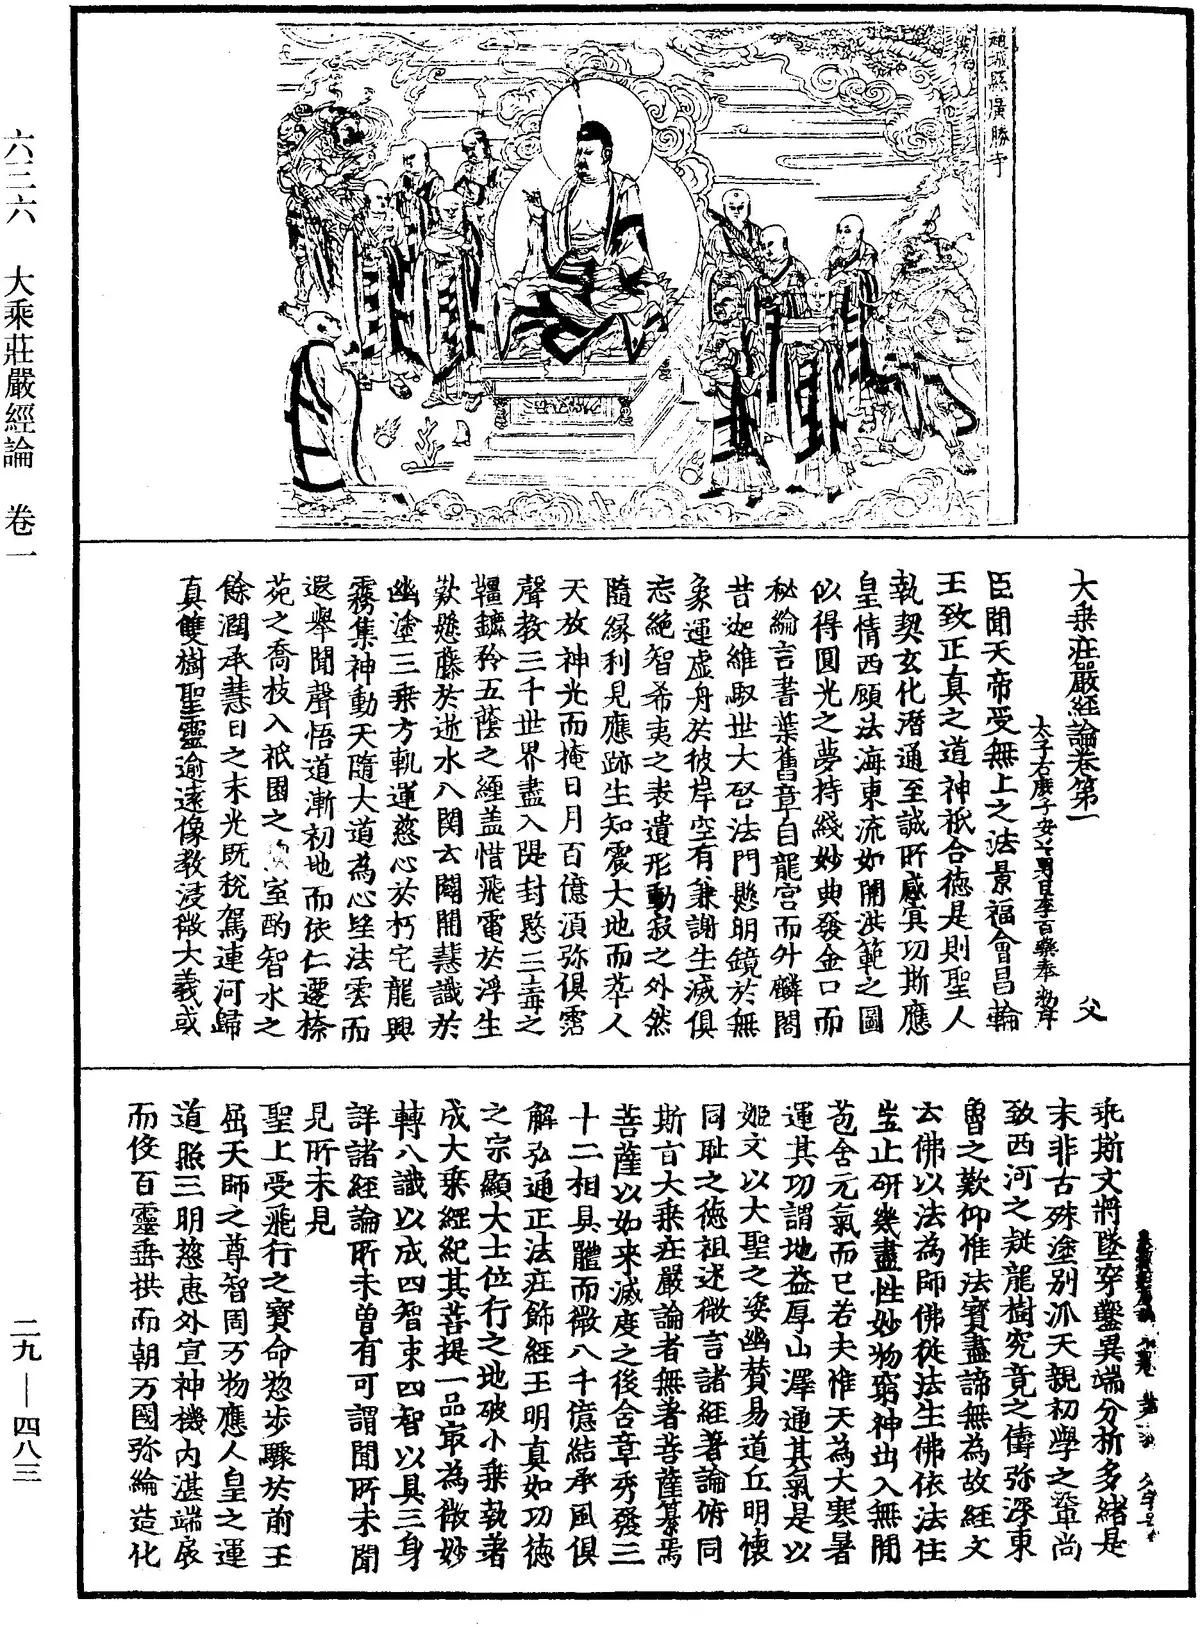 趙城縣廣勝寺
大乘莊嚴經論卷第一 父
太子右庶子安平男臣李百藥奉 勑撰
臣聞天帝受無上之法景福會昌輪
王致正真之道神祇合德是則聖人
執契玄化潛通至誠所感冥功斯應
皇情西顧法海東流如開洪範之圖
似得圓光之夢持綫妙典發金口而
秘綸言書葉舊章自龍宮而外麟閣
昔迦維馭世大啓法門懸明鏡於無
象運虛舟於彼岸空有兼謝生滅俱
忘絕智希夷之表遺形動寂之外然
隨緣利見應跡生知震大地而萃人
天放神光而掩日月百億須弥俱霑
聲教三千世界盡入隄封愍三毒之
韁鏕矜五蔭之纏盖惜飛電於浮生
歎懸藤於逝水八関玄闢開慧識於
幽塗三乘方軌運慈心於朽宅龍興
霧集神動天隨大道為心望法雲而
遐舉聞聲悟道漸初地而依仁遷㮈
苑之喬枝入祇園之 室酌智水之
餘潤承慧日之末光既稅駕連河歸
真雙樹聖靈逾遠像教浸微大義或
乖斯文將墜穿鑿異端分析多緒是
末非古殊塗別派天親初學之輩尚
致西河之疑龍樹究竟之儔弥深東
魯之歎仰惟法寶盡諦無為故經文
云佛以法為師佛從法生佛依法住
豈止研幾盡性妙物窮神出入無間
苞含元氣而已若夫惟天為大寒暑
運其功謂地益厚山澤通其氣是以
姬文以大聖之姿幽賛易道丘明懷
同耻之德祖述微言諸經著論俯同
斯旨大乘莊嚴論者無著菩薩纂焉
菩薩以如来滅度之後含章秀發三
十二相具體而微八千億結承風俱
解弘通正法莊飾經王明真如功德
之宗顯大士位行之地破小乘執著
成大乘經紀其菩提一品㝡為微妙
轉八識以成四智束四智以具三身
詳諸經論所未曽有可謂聞所未聞
見所未見
聖上受飛行之寶命惣步驟於前王
屈天師之尊智周万物應人皇之運
道照三明慈惠外宣神機內湛端扆
而役百靈垂拱而朝万國弥綸造化
六三六 大乘莊嚴經論 卷一
二九—四八三